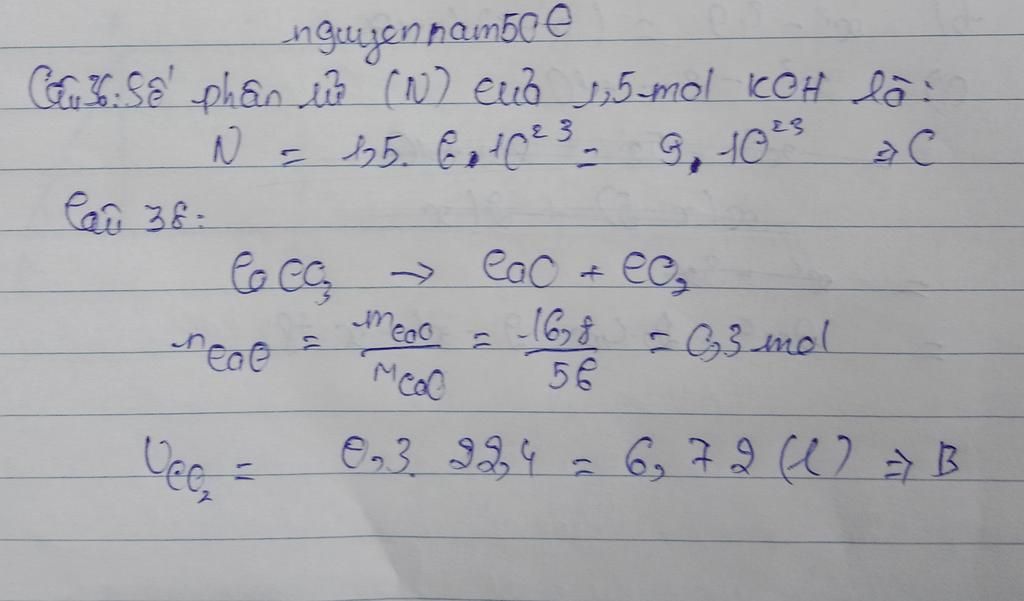 nguyennam50e
Câu 36: Số phân tử (N) của 1,5 mol KOH là:
N = 1,5. 6.10²³ = 9.10²³ ⇒ C
Câu 38:
CaCO₃ → CaO + CO₂
nCaO = mCaO/MCaO = 16,8/56 = 0,3 mol
VCO₂ = 0,3. 22,4 = 6,72 (l) ⇒ B